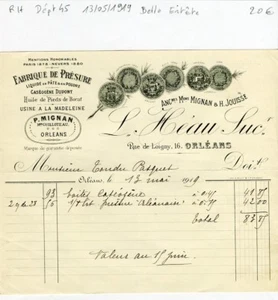 RH Dépt 45 13/05/1919 Belle Entête 20€
MENTIONS HONORABLES
PARIS 1878 - NEVERS 1880
FABRIQUE DE PRÉSURE
LIQUIDE EN PÂTE & EN POUDRE
CASÉOGÈNE DUPONT
Huile de Pieds de Bœuf
USINE A LA MADELEINE
P. MIGNAN
ORLÉANS
Marque de garantie déposée
ANC.NES M.ONS MIGNAN & H. JOUISSE
L. Héau Suc.r
Rue de Loigny, 16. ORLÉANS
Monsieur Doit
Orléans, le 13 mai 1919
93 boites Caséogène à
présure Orléanaise à 42 00
total 83 85
Valeur au 15 juin.